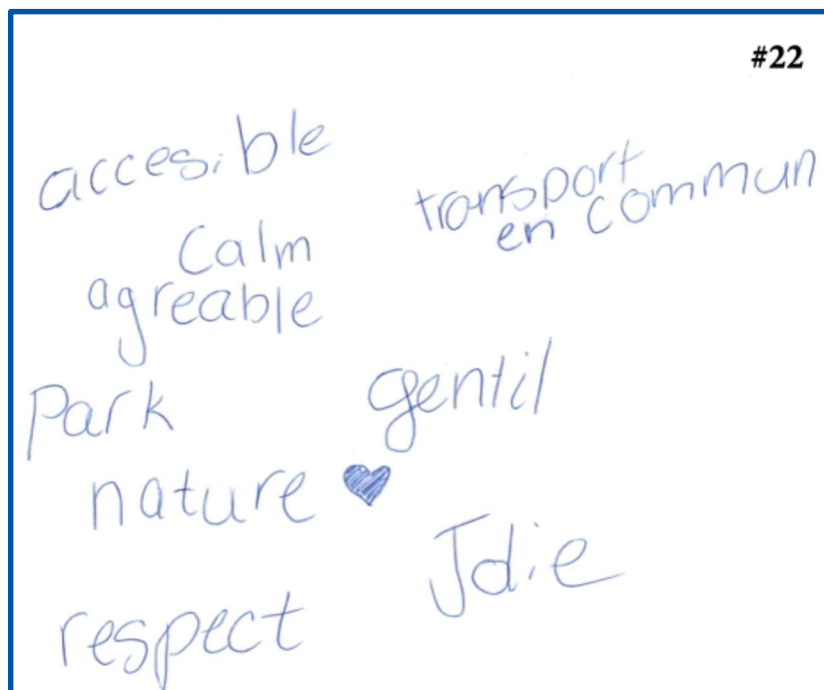 #22
accesible
transport
en commun
Calm
agreable
Park
gentil
nature
Jdie
respect